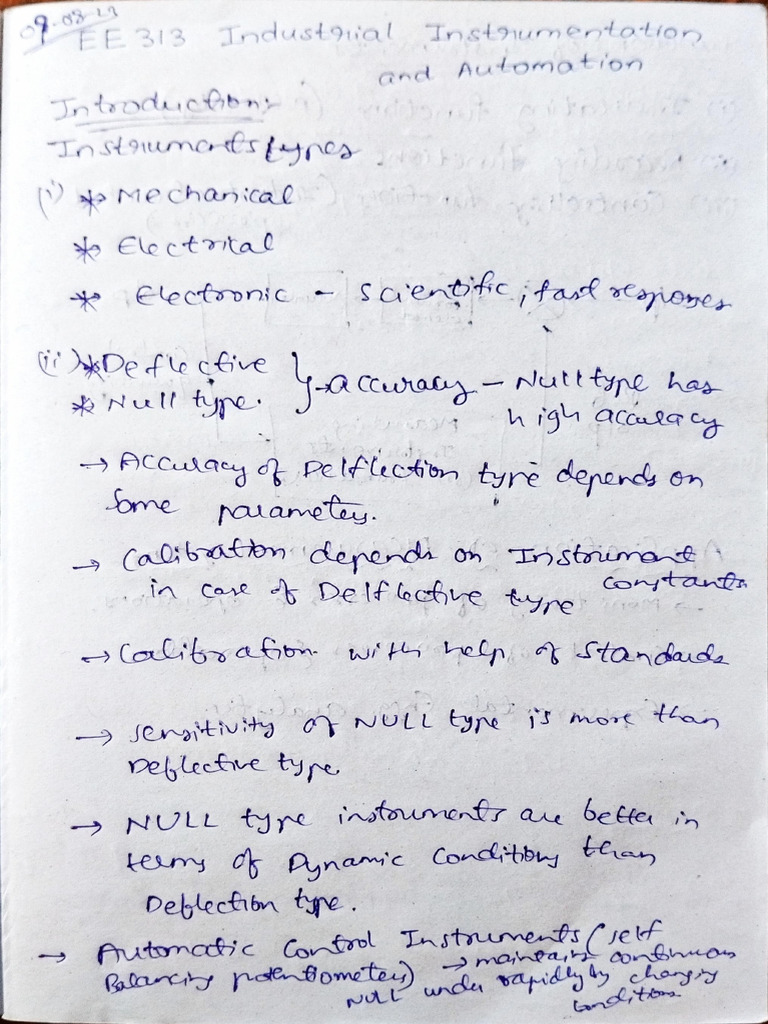 09-08-23
EE 313 Industrial Instrumentation
and Automation
Introduction:
Instruments types
(i) * Mechanical
* Electrical
* Electronic - Scientific, fast responses
(ii) * Deflective
* Null type. } → accuracy - Null type has
high accuracy
→ Accuracy of Delflection type depends on
Some parameters.
→ Calibration depends on Instrument
constants
in case of Delflective type
→ Calibration with help of Standards
→ Sensitivity of NULL type is more than
Deflective type
→ NULL type instruments are better in
terms of Dynamic Conditions than
Deflection type.
→ Automatic Control Instruments (self
Balancing potentiometers) → maintains continuous
NULL under rapidly by changing
conditions